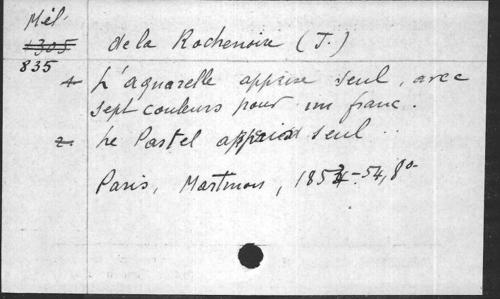 Mél.
1305
835
de la Rochenoire (J.)
1 L'aquarelle apprise seul, avec
sept couleurs pour un franc.
2 Le Pastel appris seul..
Paris, Martinon, 1853-54, 8º